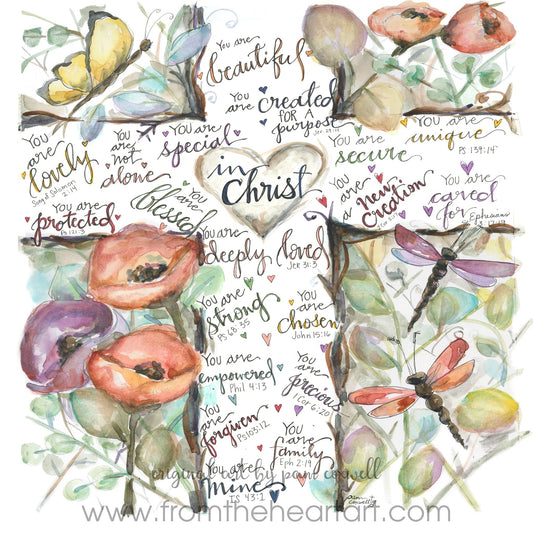 You are
beautiful
You are
created
for a
purpose
Jer 29:11
You are
special
You are
unique
Ps 139:14
You are
lovely
Song of Solomon
You are
not
alone
You are
secure
in
Christ
You are
a new
creation
You are
cared
for
Ephesians
3:17-19
You are
protected
Ps 121:3
You are
blessed
You are
deeply loved
Jer 31:3
You are
strong
Ps 68:35
You are
chosen
John 15:16
You are
empowered
Phil 4:13
You are
precious
1 Cor 6:20
You are
forgiven
Ps 103:12
You are
family
Eph 2:19
You are
mine
IS 43:1
original art by pam coxwell
www.fromtheheartart.com